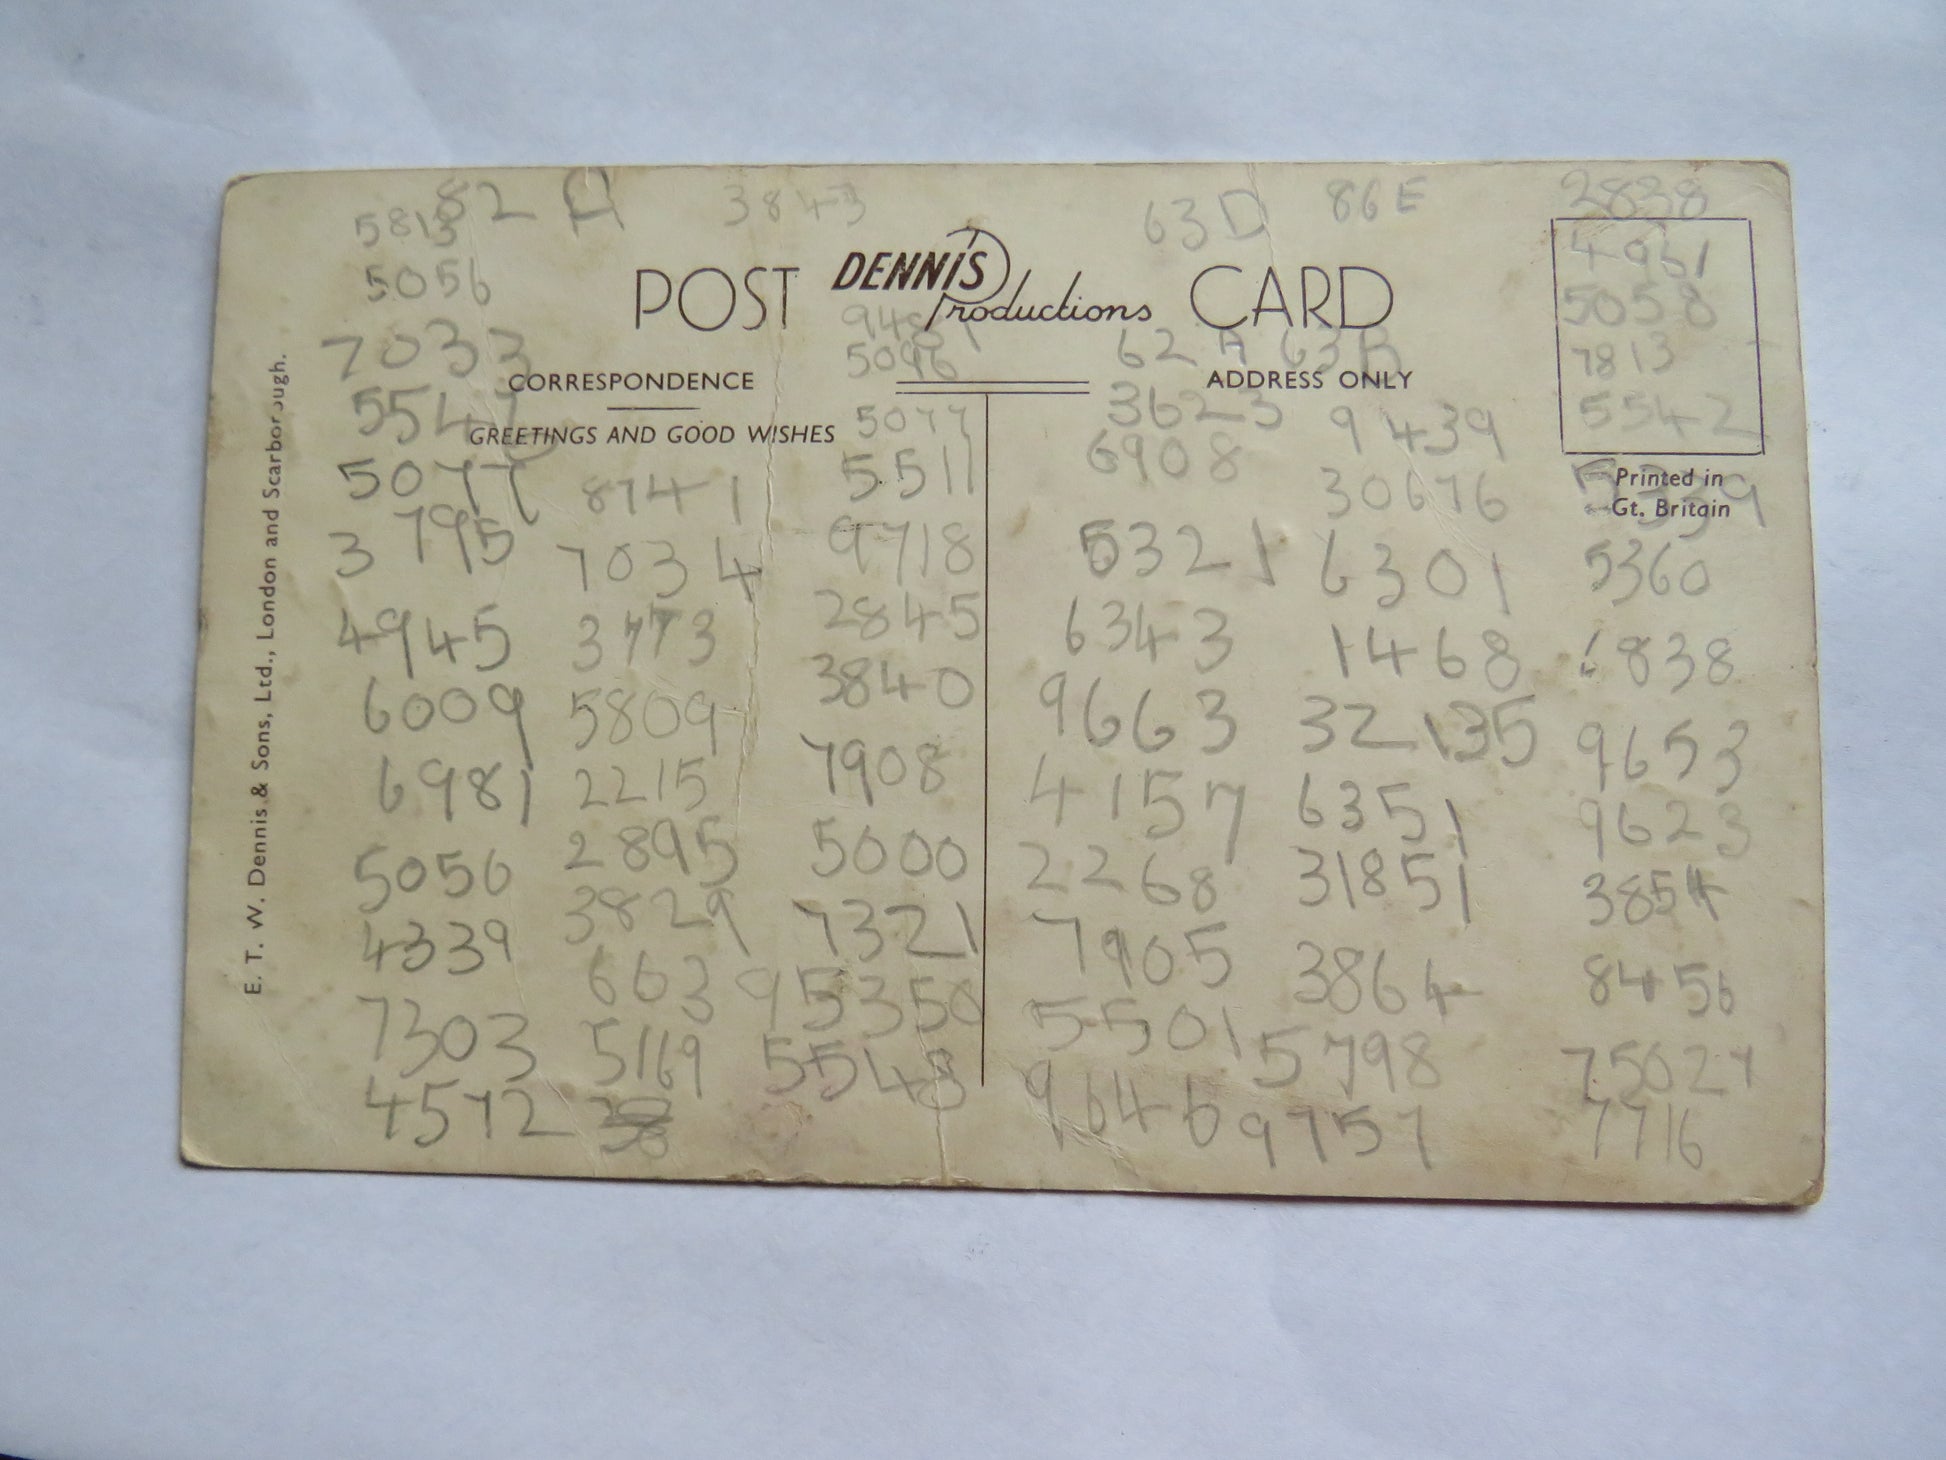 82 A
3843
63D
86E
2838
5813
5056
7033
5077
3 795
4945
6009
6981
5056
4339
7303
4572
POST DENNIS Productions CARD
CORRESPONDENCE
GREETINGS AND GOOD WISHES
8741
7034
3773
5809
2215
2895
3829
663
5169
5096
5077
5511
9718
2845
3840
7908
5000
7321
95350
5543
62 A 63B
ADDRESS ONLY
3623
6908
5321
6343
9663
4157
2268
7905
5501
9646
9439
30676
6301
1468
32135
6351
31851
3864
5798
9757
4961
5058
7813
5542
Printed in
Gt. Britain
5339
5360
6838
9653
9623
3854
8456
75027
7716
E. T. W. Dennis & Sons, Ltd., London and Scarborough.